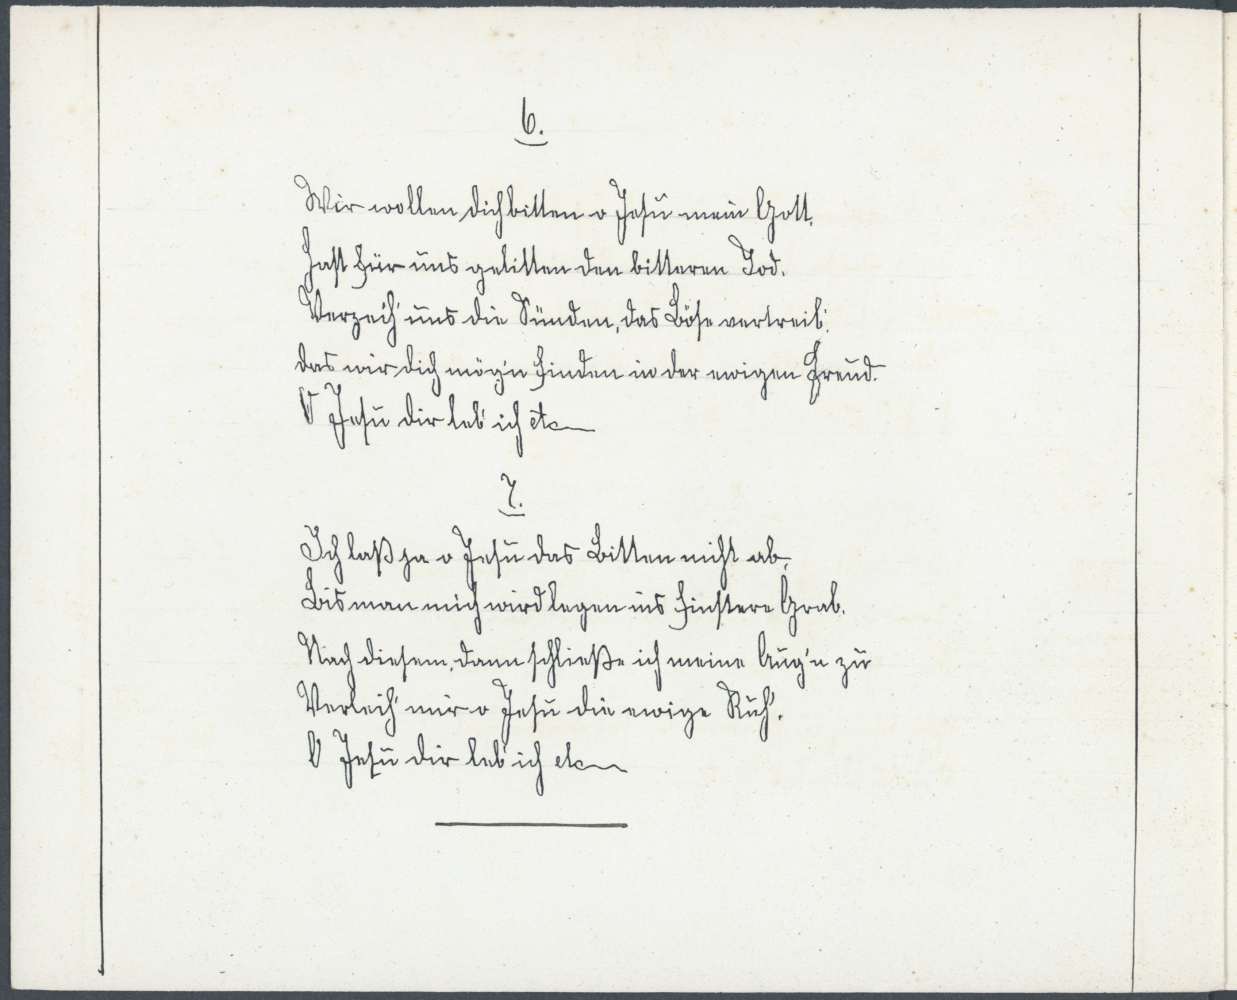 6.
Wir wollen dich bitten o Jesu mein Gott,
Hast für uns gelitten den bitteren Tod.
Verzeih' uns die Sünden, das Böse vertreib',
das wir dich mög'n finden in der ewigen Freud.
O Jesu dir leb' ich etc
7.
Ich laß ja o Jesu das Bitten nicht ab,
Bis man mich wird legen ins finstere Grab.
Nach diesem, dann schließe ich meine Aug'n zu
Verleih' mir o Jesu die ewige Ruh'.
O Jesu dir leb' ich etc